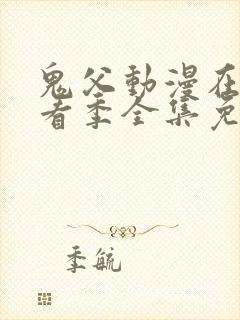 鬼父動漫在
看季全集免
季毓